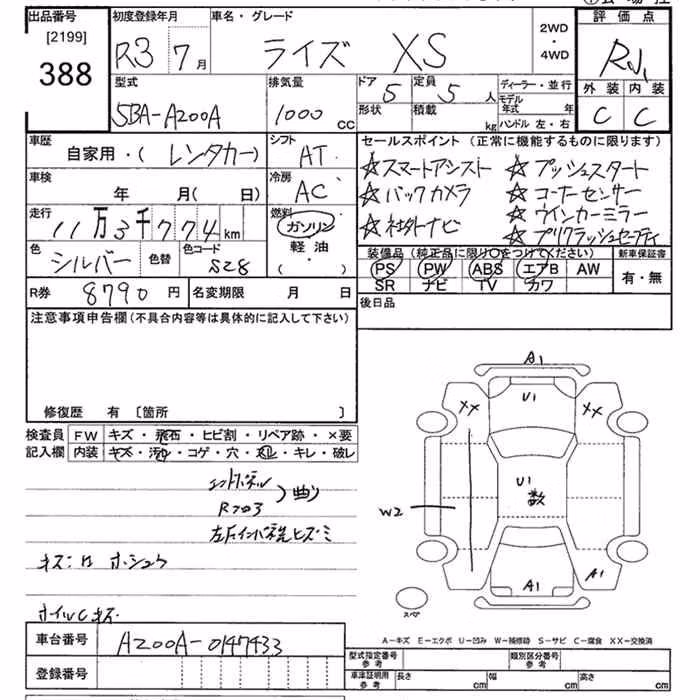 出品番号
[2199]
388
初度登録年月
R3 7月
車名・グレード
ライズ XS
2WD
・
4WD
評価点
外装 内装
C C
型式
5BA-A200A
排気量
1000 CC
ドア
5
定員
5人
形状
積載
kg
ディーラー・並行
モデル年式 年
ハンドル 左・右
車歴
自家用・(レンタカー)
シフト
AT
車検
年 月( 日)
冷房
AC
走行
11万3千774km
燃料
ガソリン
軽油
( ・ )
色
シルバー
色替
色コード
S28
セールスポイント (正常に機能するものに限ります)
☆スマートアシスト ☆プッシュスタート
☆バックカメラ ☆コーナーセンサー
☆社外ナビ ☆ウインカーミラー
☆プリクラッシュセーフティ
装備品(純正品に限り○をつけてください)
PS PW ABS エアB AW
SR ナビ TV カワ
新車保証書
有・無
R券 8790円
名変期限 月 日
後日品
注意事項申告欄(不具合内容等は具体的に記入して下さい)
修復歴 有 〔箇所 〕
検査員
記入欄
FW キズ・飛石・ヒビ割・リペア跡・×要
内装 キズ・汚れ・コゲ・穴・スレ・キレ・破レ
曲り
キズ: ホシュウ
ホイルCキズ
A1
XX U1 XX
U1
数
W2
A1 A1
スペア
A-キズ E-エクボ U-凹み W-補修跡 S-サビ C-腐食 XX-交換済
車台番号 A200A-0147433
登録番号
型式指定番号
参考
類別区分番号
参考
車庫証明用
参考
長さ cm 幅 cm 高さ cm